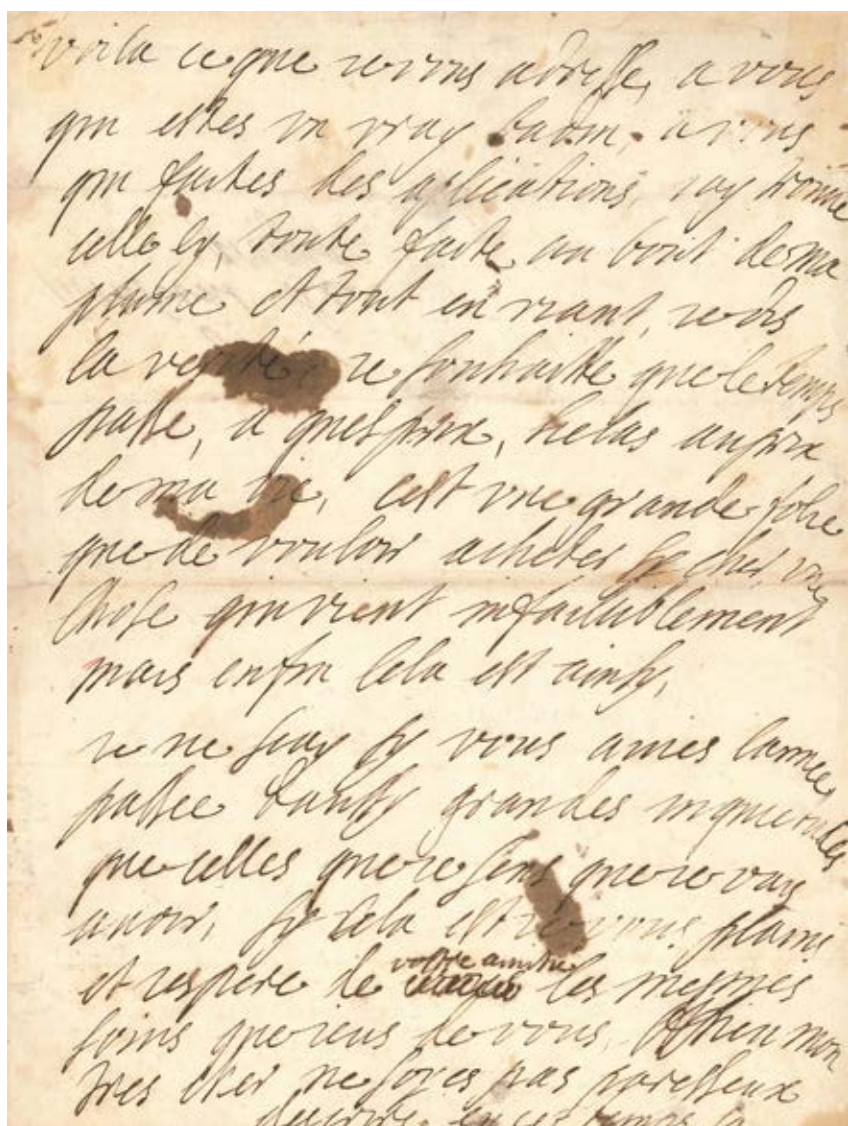 voila ce que ie vous adresse, a vous
qui estes un vray a vous
qui faites des aplications, iay trouué
celle cy, toute faite au bout de ma
plume et tout en riant, ie dis
la verité, ie souhaitte que le temps
passe, a quel prix, helas au prix
de ma vie, cest vne grande folie
que de vouloir acheter sy cher vne
chose qui vient infailliblement
mais enfin cela est ainsy,
ie ne scay sy vous auies lannee
passee daussy grandes inquietudes
que celles que ie sens que ie vay
auoir, sy cela est ie vous plains
et iespere de vostre amitié les mesmes
soins que ieus de vous. mon
tres cher ne soyes pas paresseux
descrire en ces temps la